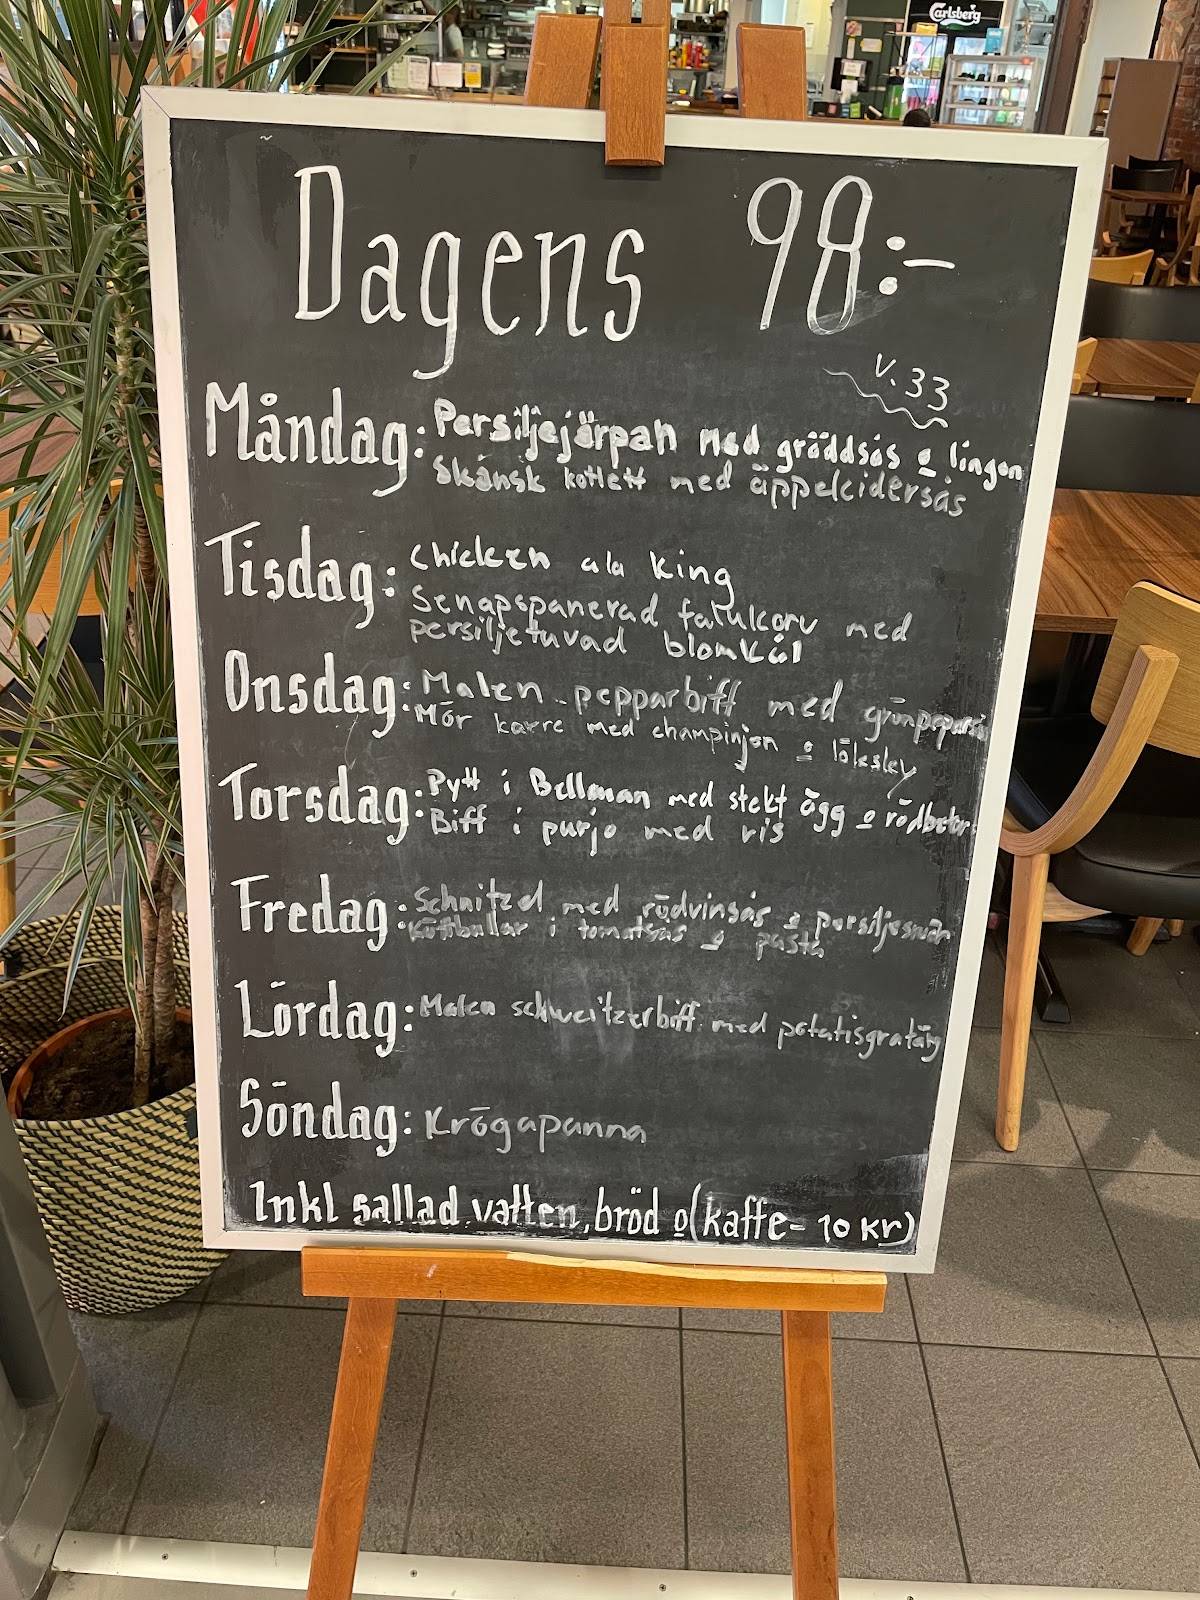 Carlsberg
Dagens 98:-
v.33
Måndag: Persiljejärpan med gräddsås o lingon
Skånsk kotlett med äppelcidersås
Tisdag: Chicken ala King
Senapspanerad falukorv med
persiljetuvad blomkål
Onsdag: Malen pepparbiff med grönpeparsås
Mör karre med champinjon o löksky
Torsdag: Pytt i Bellman med stekt ägg o rödbetor
Biff i purjo med ris
Fredag: Schnitzel med rödvinsås o persiljesmör
Köttbular i tomatsås o pasta
Lördag: Malen schweitzerbiff med potatisgratäng
Söndag: Krögapanna
Inkl sallad, vatten, bröd o (kaffe- 10 kr)